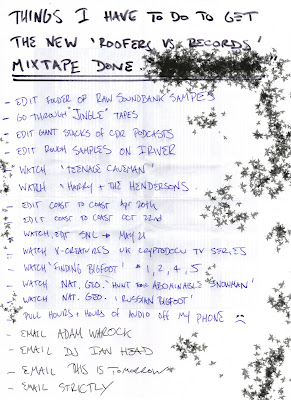 THINGS I HAVE TO DO TO GET
THE NEW 'ROOFERS VS. RECORDS'
MIXTAPE DONE.
- EDIT FOLDER OF RAW SOUNDBANK SAMPLES
- GO THROUGH 'JINGLE' TAPES
- EDIT GIANT STACKS OF CDR PODCASTS
- EDIT ROUGH SAMPLES ON IRIVER
- WATCH 'TEENAGE CAVEMAN'
- WATCH 'HARRY + THE HENDERSONS.
- EDIT COAST TO COAST APR 20th
- EDIT COAST TO COAST OCT 22nd
- WATCH, EDIT SNL → MAY 21
- WATCH X-CREATURES UK CRYPTODOCU TV SERIES
- WATCH 'FINDING BIGFOOT' 1, 2, 4, 5
- WATCH NAT. GEO. 'HUNT FOR ABOMINABLE SNOWMAN'
- WATCH NAT. GEO. 'RUSSIAN BIGFOOT'
- PULL HOURS + HOURS OF AUDIO OFF MY PHONE
- EMAIL ADAM WARROCK
- EMAIL DJ IAN HEAD
- EMAIL THIS IS TOMORROW
- EMAIL STRICTLY